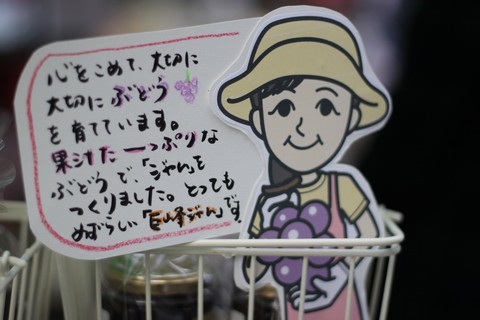 心をこめて、大切に
大切にぶどう
を育てています。
果汁たーっぷりな
ぶどうで、「ジャム」を
つくりました。とっても
めずらしい「巨峰ジャム」です